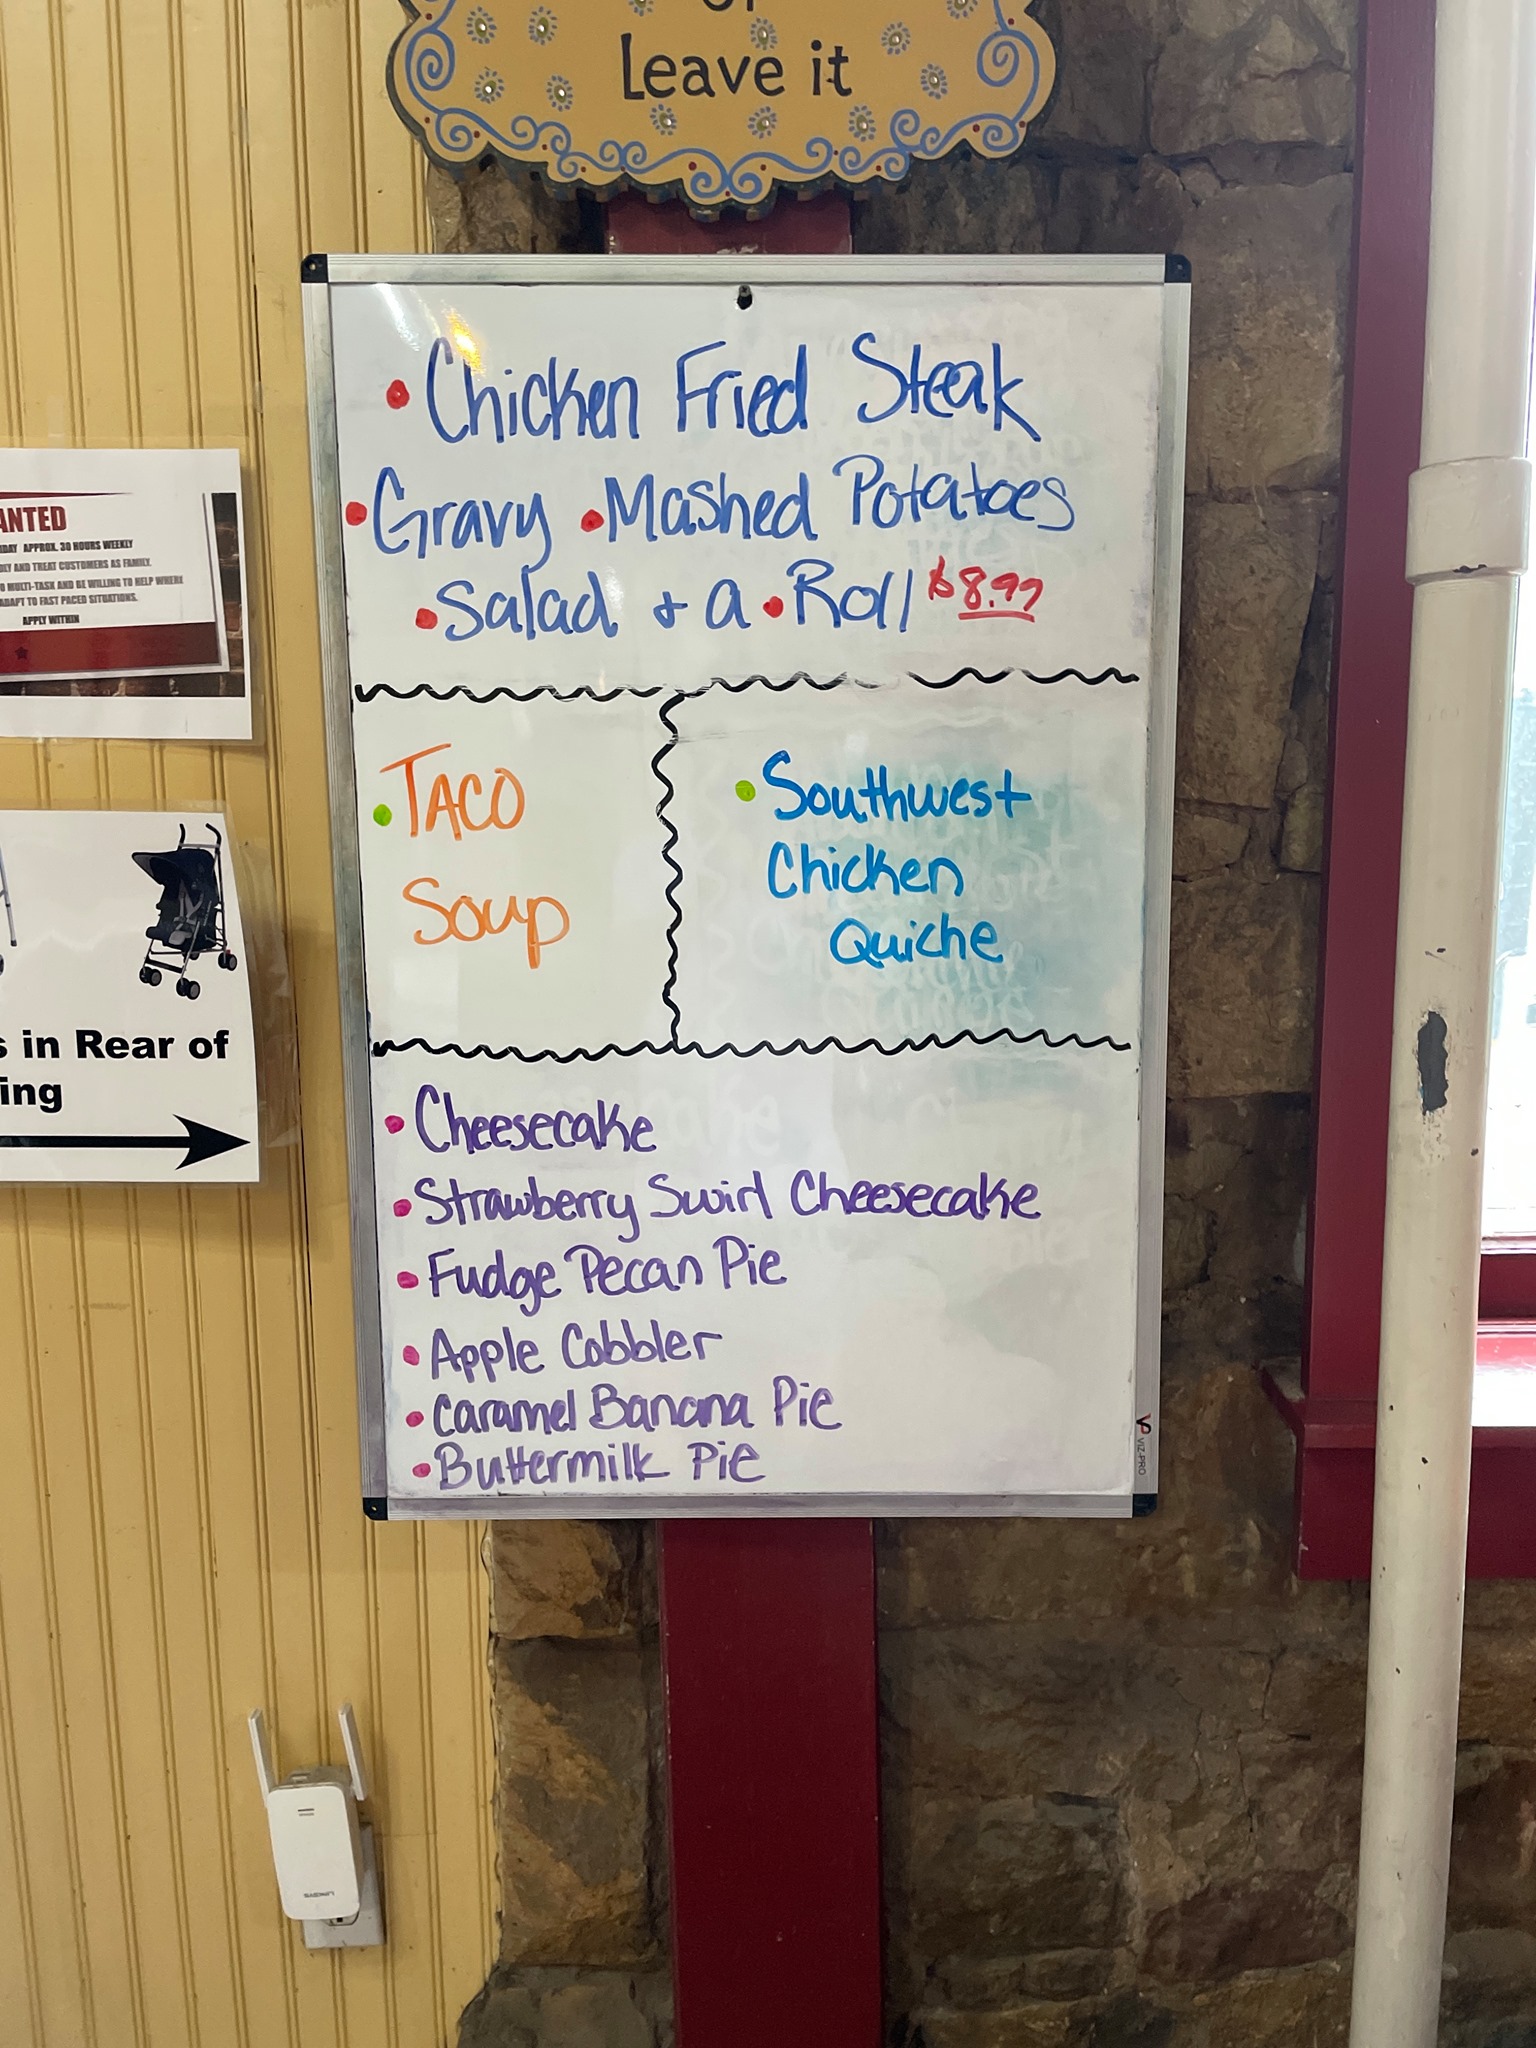 Leave it
• Chicken Fried Steak
• Gravy • Mashed Potatoes
• Salad + a • Roll $8.99
• TACO
Soup
• Southwest
Chicken
Quiche
• Cheesecake
• Strawberry Swirl Cheesecake
• Fudge Pecan Pie
• Apple Cobbler
• Caramel Banana Pie
• Buttermilk Pie
VIZ-PRO
ANTED
DAY APPROX. 30 HOURS WEEKLY
DLY AND TREAT CUSTOMERS AS FAMILY.
O MULTI-TASK AND BE WILLING TO HELP WHERE
ADAPT TO FAST PACED SITUATIONS.
APPLY WITHIN
s in Rear of
ing
LINKSYS